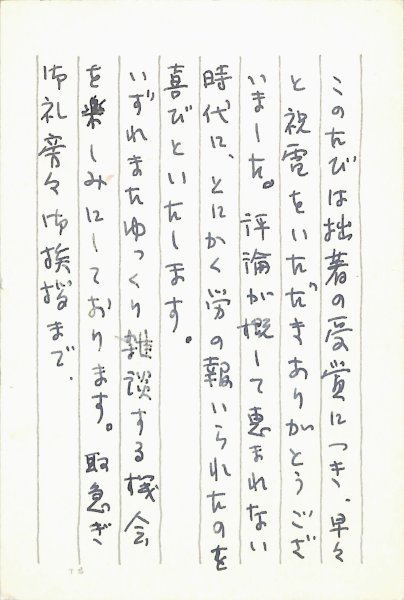 このたびは拙著の受賞につき、早々
と祝電をいただきありがとうござ
いました。評論が概して恵まれない
時代に、とにかく労の報いられたのを
喜びといたします。
いずれまたゆっくり雑談する機会
を楽しみにしております。取急ぎ
御礼旁々御挨拶まで.